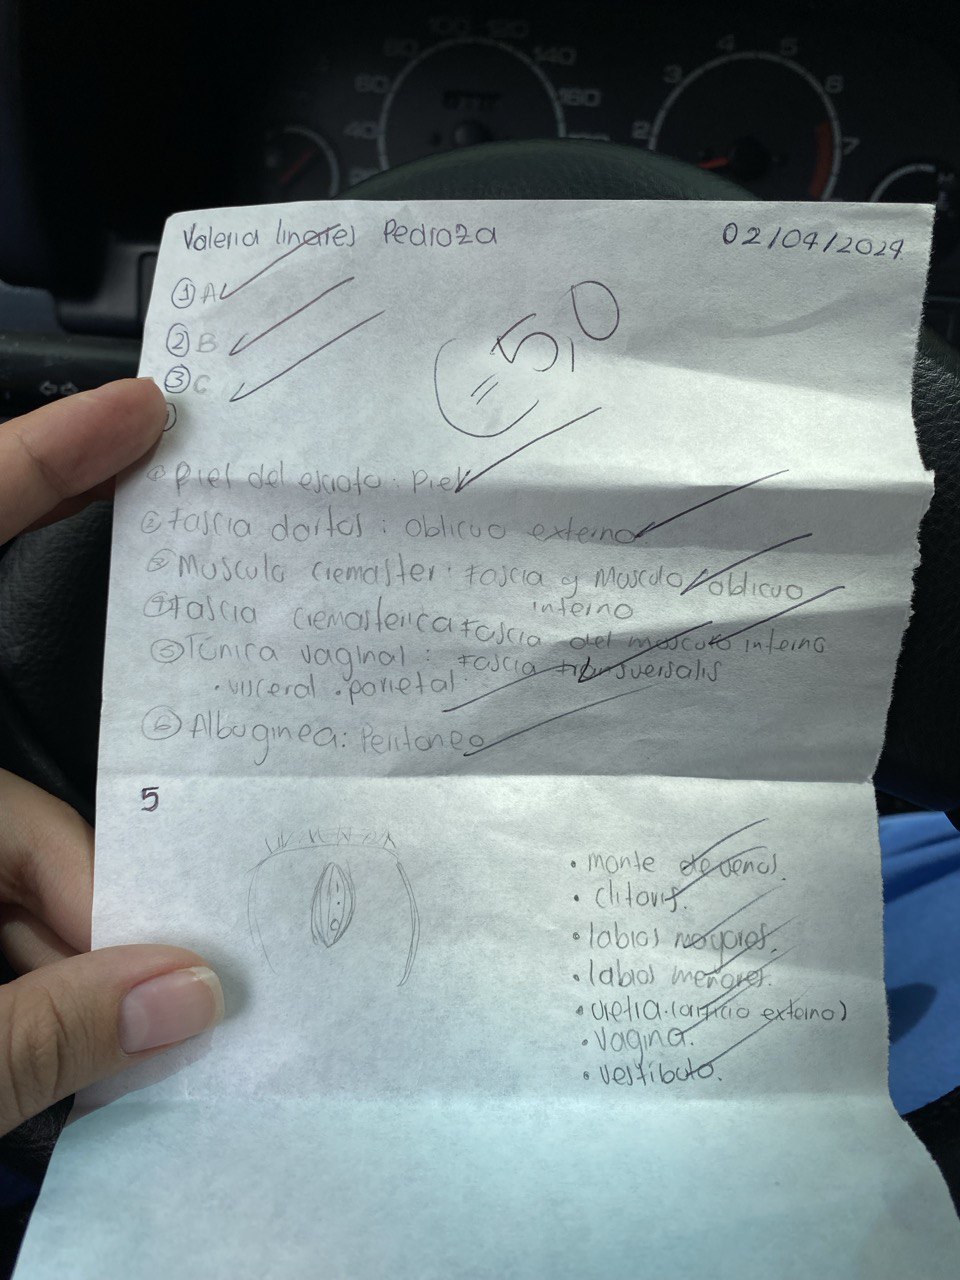 100 120
80
140
60
160
40
3
4
5
6
2
7
H
Valeria linares Pedroza
02/04/2024
① A
② B
③ C
= 5,0
① Piel del escroto: Piel
② Fascia dartos: Oblicuo externo
③ Musculo cremaster: Fascia y Musculo oblicuo
interno
④ Fascia cremasterica fascia del musculo interno
⑤ Túnica vaginal: fascia transversalis
• visceral • parietal
⑥ Albuginea: Peritoneo
5
• monte de venus.
• clitoris.
• labios mayores.
• labios menores.
• uretra (orificio externo)
• vagina.
• vestibulo.